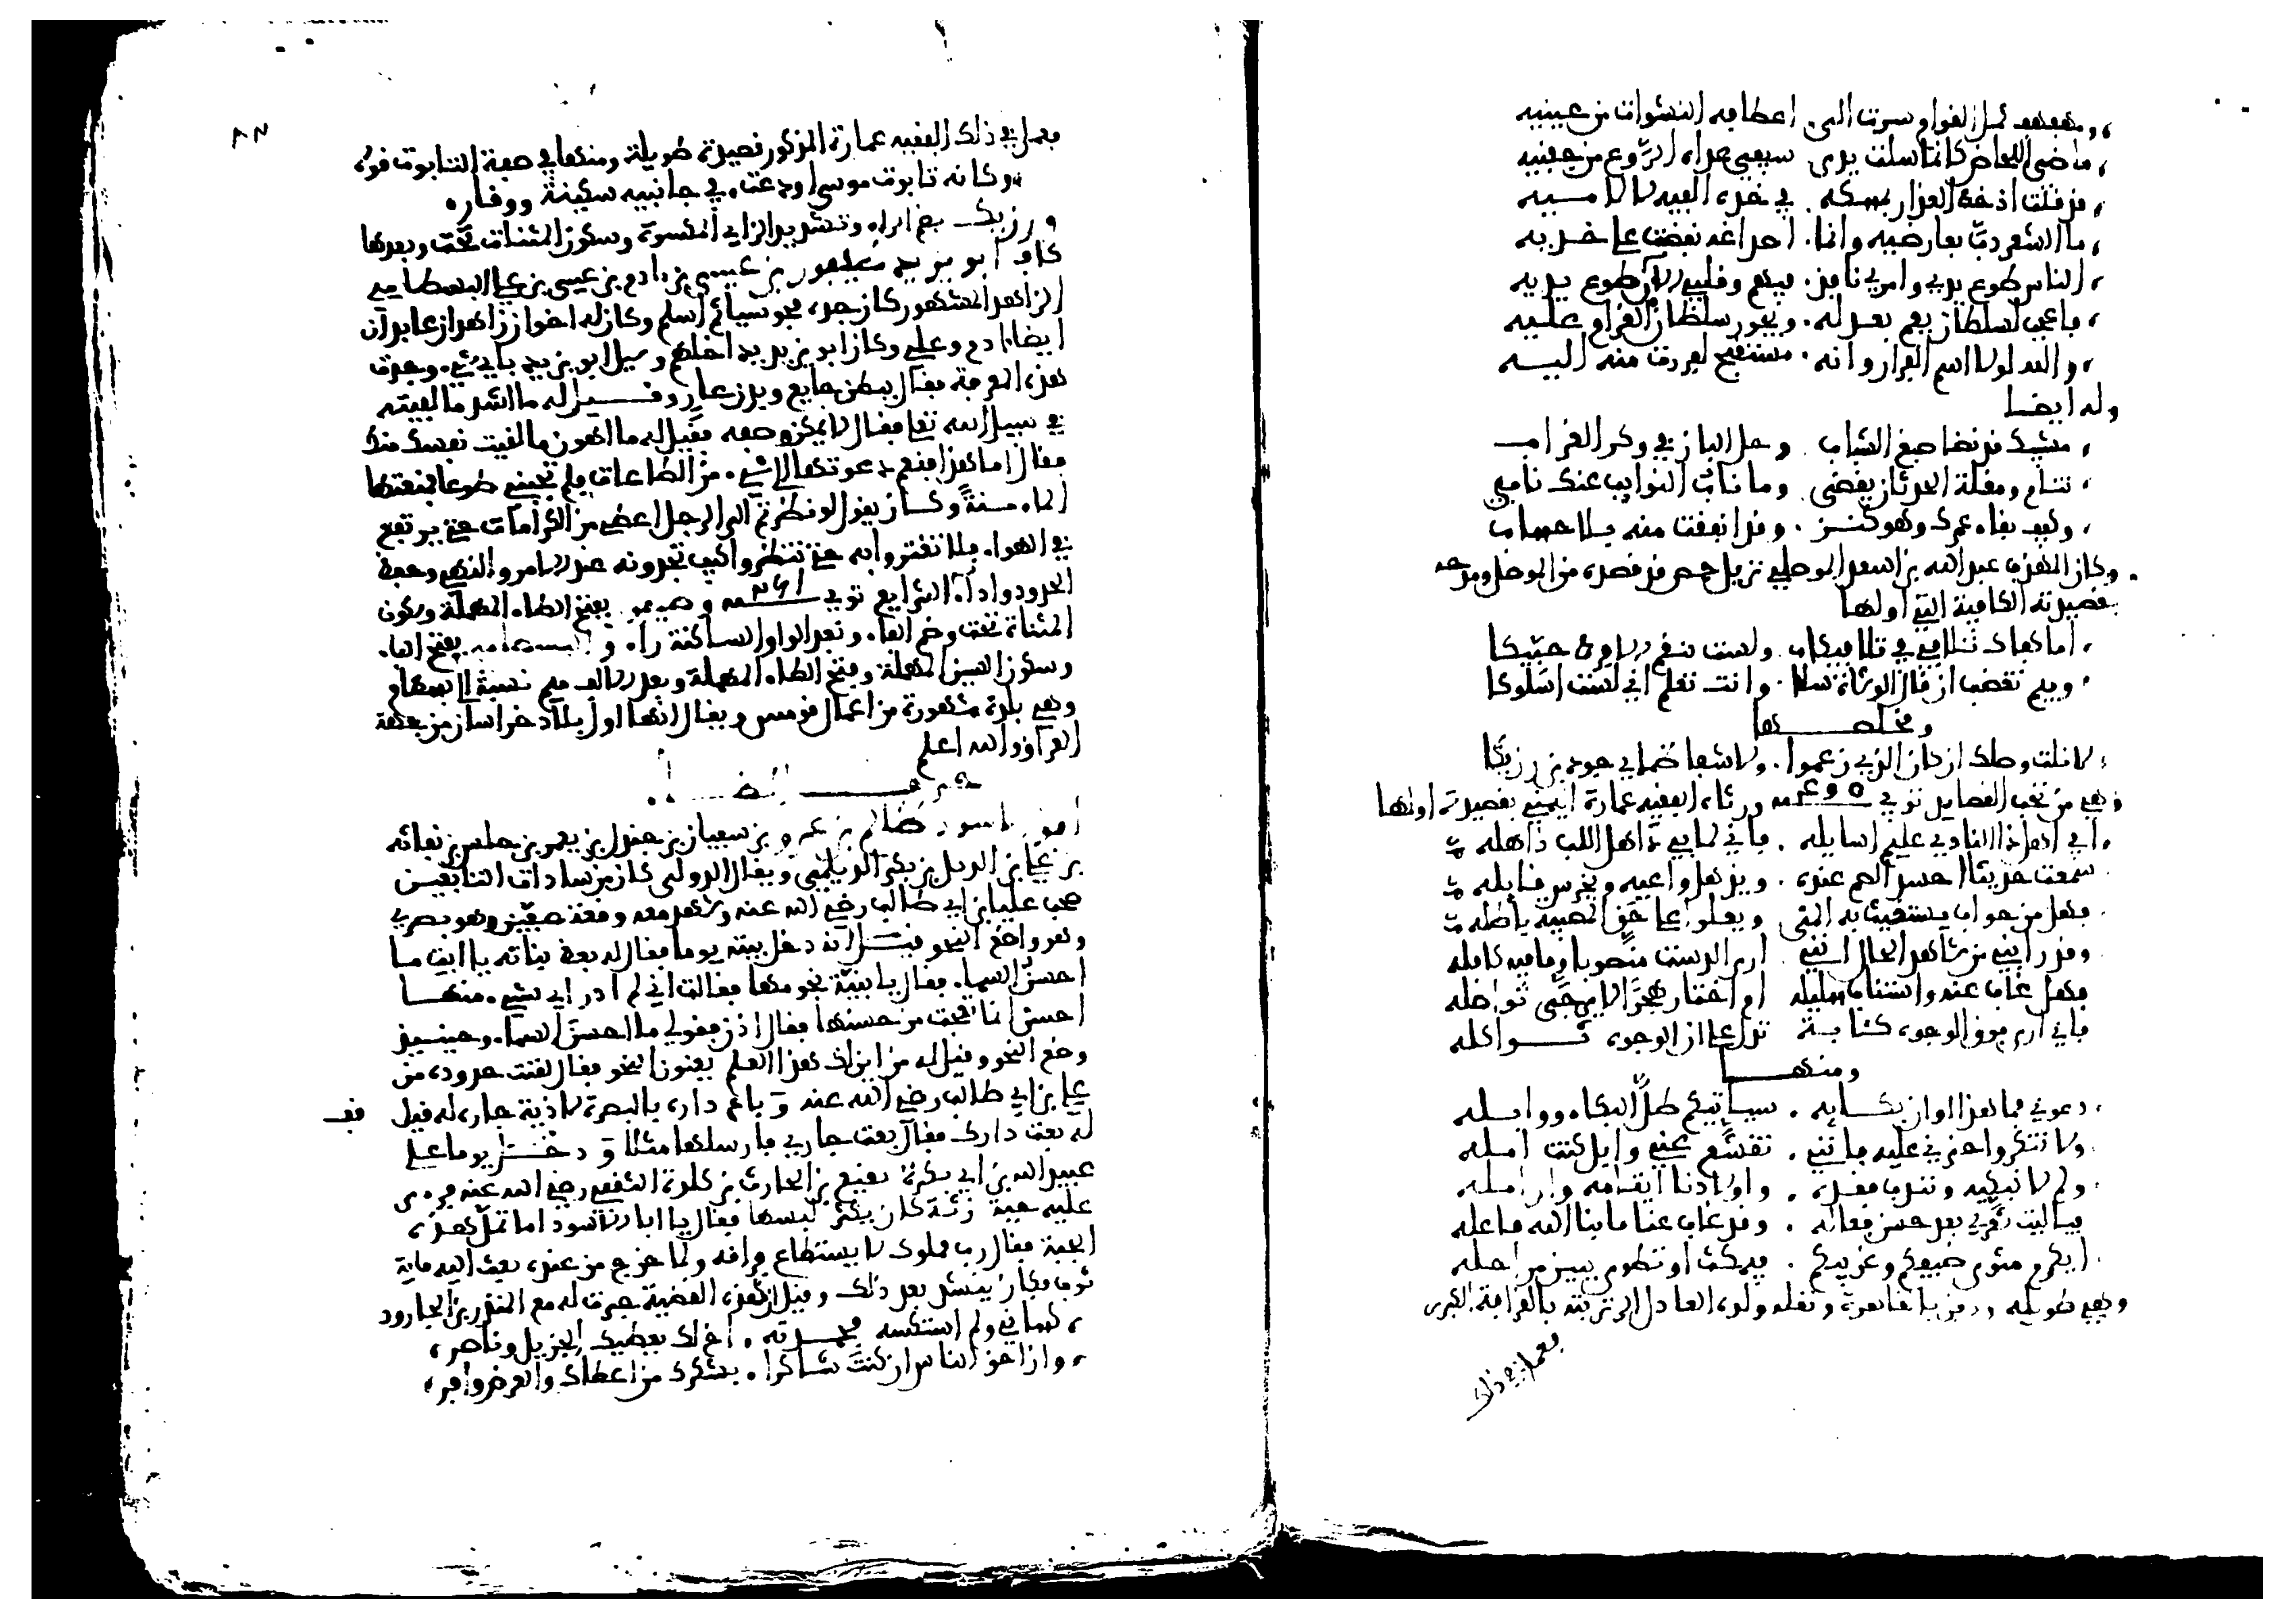 ومهفهف ثمل القوام سرت الى اعطافه النشوات من عينيه
ماضي اللحاظ كانما سلت يدي سيفي غداة الروع من جفنيه
قد قلت اذ خط العذار بمسكه في خده الفيه لا لاميه
ما الشعر دب بعارضيه وانما اصداغه نفضت على خديه
الناس طوع يدي وامري نافذ فيهم وقلبي الان طوع يديه
فاعجب لسلطان يعم بعدله ويجور سلطان الغرام عليه
والله لولا اسم الفرار وانه مستقبح لفررت منه اليه
وله ايضا
مشيبك قد نضا صبغ الشباب وحل الباز في وكر الغراب
تنام ومقلة الحدثان يقضى وما ناب النوايب عنك نابي
وكيف بقاء عمرك وهو كنز وقد انفقت منه بلا حساب
وكان المهذب عبد الله بن اسعد الموصلي نزيل حمص قد قصده من الموصل ومدحه
بقصيدته الكافية التي اولها
اما كفاك تلافي في تلافيكا ولست تنقم الا فرط حبيكا
وفيم تغضب ان قال الوشاة سلا وانت تعلم اني لست اسلوكا
ومخلصها
لا نلت وصلك ان كان الذي زعموا ولا شفا ظمئي جود بن رزيكا
وهي من نخب القصايد توفي ورثاه الفقيه عمارة اليمني بقصيدة اولها
افي اهل ذا النادي عليم اسايله فاني لما بي ذاهل اللب ذاهله
سمعت حديثا احسد الصم عنده ويذهل واعيه ويخرس قايله
فهل من جواب يستغيث به المنى ويعلوا على حق المصيبة باطله
وقد رابني من شاهد الحال انني ارى الدست منصوبا وما فيه كافله
فهل غاب عنه واستناب سليله او اختار هجرا لا يرجى تواصله
فاني ارى فوق الوجوه كئابة تدل على ان الوجوه ثواكله
ومنها
دعوني فما هذا اوان بكائه سياتيكم طل البكاء ووابله
ولا تنكروا حزني عليه فانني تقشع عني وابل كنت امله
ولم لا نبكيه ونندب فقده واولادنا ايتامه وارامله
فيا ليت شعري بعد حسن فعاله وقد غاب عنا ما بنا الله فاعله
ايكرم مثوى ضيفكم وغريبكم فيمكث او تطوى ببين مراحله
وهي طويلة ودفن بالقاهرة ونقله ولده العادل الى تربته بالقرافة الكبرى
فعمل في ذلك
فعمل في ذلك الفقيه عمارة المذكور قصيدة طويلة ومنها في صفة التابوت قوله
وكانه تابوت موسى اودعت في جانبيه سكينة ووقار
ورزيك بضم الراء وتشديد الزاي المكسورة وسكون المثناة تحت وبعدها
كاف ابو يزيد طيفور بن عيسى بن ادم بن عيسى بن علي البسطامي
الزاهد المشهور كان جده مجوسيا ثم اسلم وكان له اخوان زاهدان عابدان
ايضا ادم وعلي وكان ابو يزيد اجلهم وسيل ابو يزيد باي شيء وجدت
هذه المعرفة فقال ببطن جايع وبدن عار وقيل له ما اشد ما لقيته
في سبيل الله تعلى فقال لا يمكن وصفه فقيل له ما اهون ما لقيت نفسك منك
فقال اما هذا فنعم دعوتها الى شيء من الطاعات فلم تجبني طوعا فمنعتها
الماء سنة وكان يقول لو نظرتم الى الرجل اعطي من الكرامات حتى يرتفع
في الهواء فلا تغتروا به حتى تنظروا كيف تجدونه عند الامر والنهي وحفظ
الحدود واداء الشرايع توفي ٢٦١ وطيفور بفتح الطاء المهملة وسكون
المثناة تحت وضم الفاء وبعد الواو الساكنة راء والبسطامي بفتح الباء
وسكون السين المهملة وفتح الطاء المهملة وبعد الالف ميم نسبة الى بسطام
وهي بلدة مشهورة من اعمال قومس ويقال انها اول بلاد خراسان من جهة
العراق والله اعلم
حرف الظاء
ابو الاسود ظالم بن عمرو بن سفيان بن جندل بن يعمر بن حلس بن نفاثة
بن عدي بن الديل بن بكر الديلمي ويقال الدولي كان من سادات التابعين
صحب علي ابن ابي طالب رضي الله عنه وشهد معه وقعة صفين وهو بصري
وهو واضع النحو قيل انه دخل بيته يوما فقال له بعض بناته يا ابت ما
احسن السماء فقال يا بنية نجومها فقالت اني لم ادر اي شيء منها
احسن انما تعجبت من حسنها فقال اذن فقولي ما احسن السماء وحينيذ
وضع النحو وقيل له من اين لك هذا العلم يعنون النحو فقال لقنت حدوده من
علي بن ابي طالب رضي الله عنه وباع داره بالبصرة لاذية جاره له فقيل
له بعت دارك فقال بعت جاري فارسلها مثلا ودخل يوما على
عبيد الله بن ابي بكرة نفيع بن الحارث بن كلدة الثقفي رضي الله عنه فرءى
عليه جبة رثة كان يكثر لبسها فقال يا ابا الاسود اما تمل هذه
الجبة فقال رب مملوك لا يستطاع فراقه ولما خرج من عنده بعث اليه ماية
ثوب فكان ينشد بعد ذلك وقيل ان هذه القضية جرت له مع المنذر بن الجارود
كساني ولم استكسه فحمدته اخ لك يعطيك الجزيل وناصر
وان احق الناس ان كنت شاكرا بشكرك من اعطاك والعرض وافر